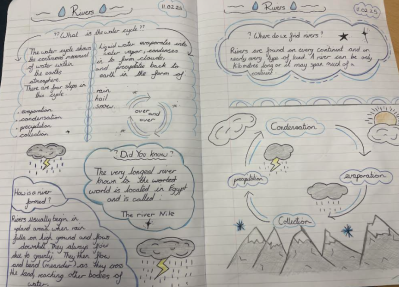 Rivers
11.02.25
"What is the water cycle?"
The water cycle shows
the continued movement
of water within
the earths
atmosphere.
There are four steps in
this cycle
- evaporation
- condensation
- precipitation
- collection
Liquid water evaporates into
water vapor, condenses
in to form clouds
and precipitate back to
earth in the form of
rain
hail
snow.
over
and
over
"Did You know?"
The very longest river
known to the
world is located in Egypt
and is called
The river Nile
How is a river
formed?
Rivers usually begin in
upland areas when rain
falls on high ground and flows
downhill. They always flow
due to gravity. They then flow
and bend (meander) as they cross
the land, reaching other bodies of
water.
Rivers
11.02.25
? Where do we find rivers?
Rivers are found on every continent and on
nearly every type of land. A river can be only
kilometres long or it may span most of a
continent
Condensation
evaporation
Collection
precipitation